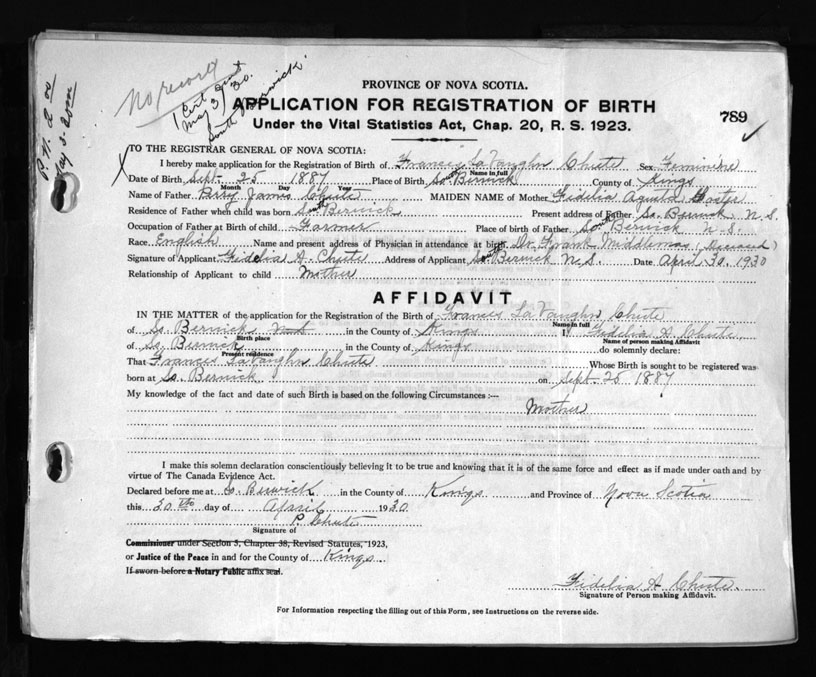 No record
1 Cert. sent
May 3/30.
South Berwick
PROVINCE OF NOVA SCOTIA.
APPLICATION FOR REGISTRATION OF BIRTH
789
Under the Vital Statistics Act, Chap. 20, R. S. 1923.
TO THE REGISTRAR GENERAL OF NOVA SCOTIA:
I hereby make application for the Registration of Birth of Frances LaVaughn Chute Sex Feminine
Name in full
Date of Birth Sept 25 1887 Place of Birth South Berwick County of Kings
Month Day Year
Name of Father Perry James Chute MAIDEN NAME of Mother Fidelia Foster
Residence of Father when child was born South Berwick Present address of Father So. Berwick N. S.
Occupation of Father at Birth of child Farmer Place of birth of Father South Berwick N. S.
Race English Name and present address of Physician in attendance at birth Dr. Frank Middlemas (Deceased)
Signature of Applicant Fidelia A. Chute Address of Applicant So. Berwick N. S. Date April 30. 1930
Relationship of Applicant to child Mother
AFFIDAVIT
IN THE MATTER of the application for the Registration of the Birth of Frances LaVaughn Chute
Name in full
of So Berwick in the County of Kings I, Fidelia A. Chute
Birth place Name of person making Affidavit
of So. Berwick in the County of Kings do solemnly declare:
Present residence
That Frances LaVaughn Chute Whose Birth is sought to be registered was
born at So. Berwick on Sept 25 1887
My knowledge of the fact and date of such Birth is based on the following Circumstances :—
Mother
I make this solemn declaration conscientiously believing it to be true and knowing that it is of the same force and effect as if made under oath and by
virtue of The Canada Evidence Act.
Declared before me at S. Berwick in the County of Kings and Province of Nova Scotia
this 30th day of April 1930
P. Chute
Signature of
Commissioner under Section 3, Chapter 38, Revised Statutes, 1923,
or Justice of the Peace in and for the County of Kings
If sworn before a Notary Public affix seal.
Fidelia A Chute
Signature of Person making Affidavit.
For Information respecting the filling out of this Form, see Instructions on the reverse side.